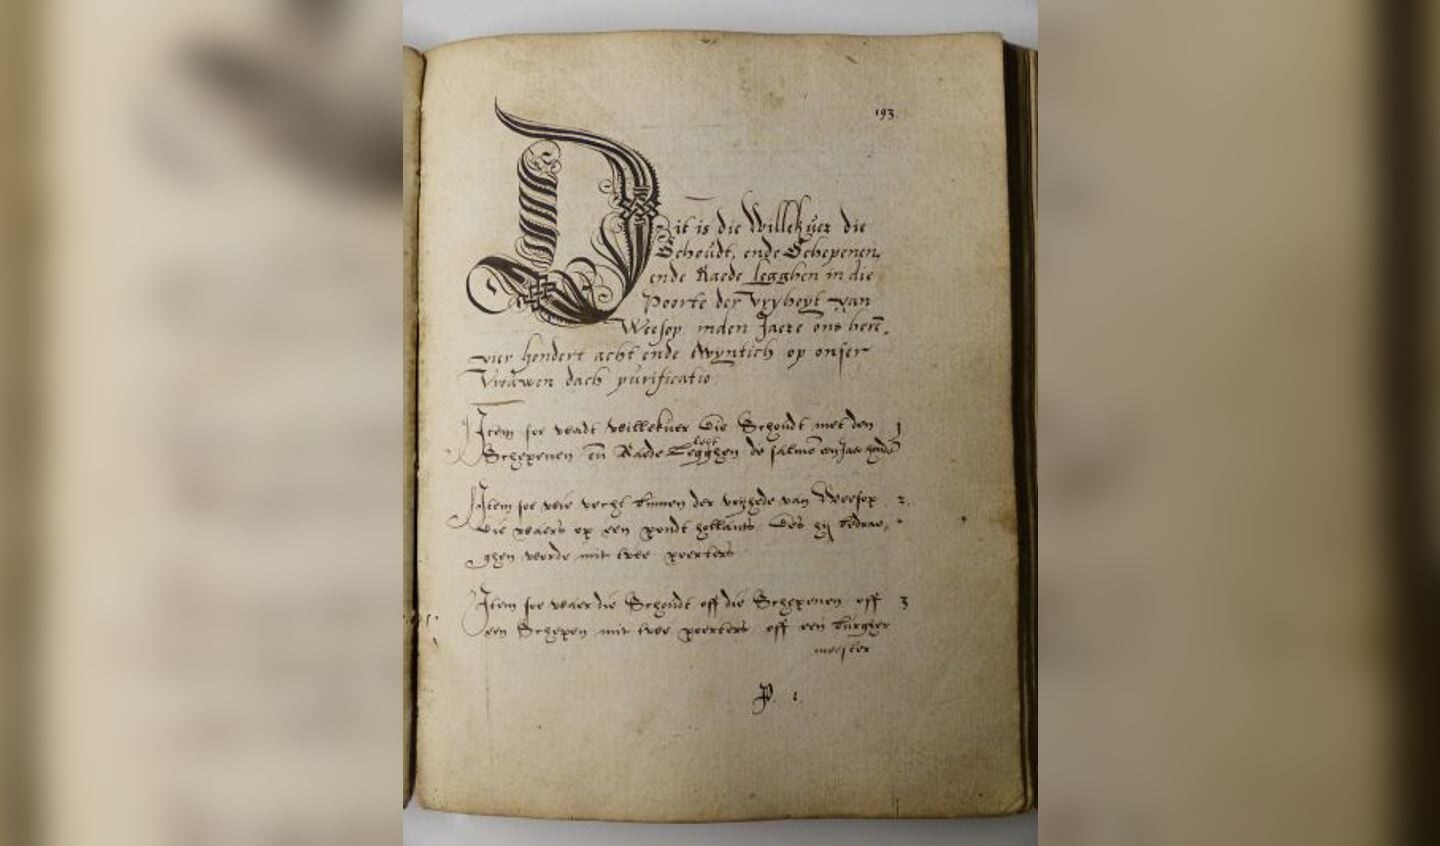 193.
Dit is die Willekuer die
Schoudt, ende Schepenen,
ende Raede legghen in die
Poorte der Vryheyt van
Weesop inden Jaere ons herē,
vier hondert acht ende twyntich op onser
Vrouwen dach purificatio
Item soe wadt willekuer die Schoudt met den 1
Schepenen eñ Raede Legghen
Item soe wie vecht binnen der vrijhede van Weesop 2.
die waers op een pondt hollants des hij bedrae,
ghen worde mit twee poorters
Item soe waer die Schoudt off die Schepenen off 3
een Schepen mit twee poorters off een burgher
meester
P. 1.